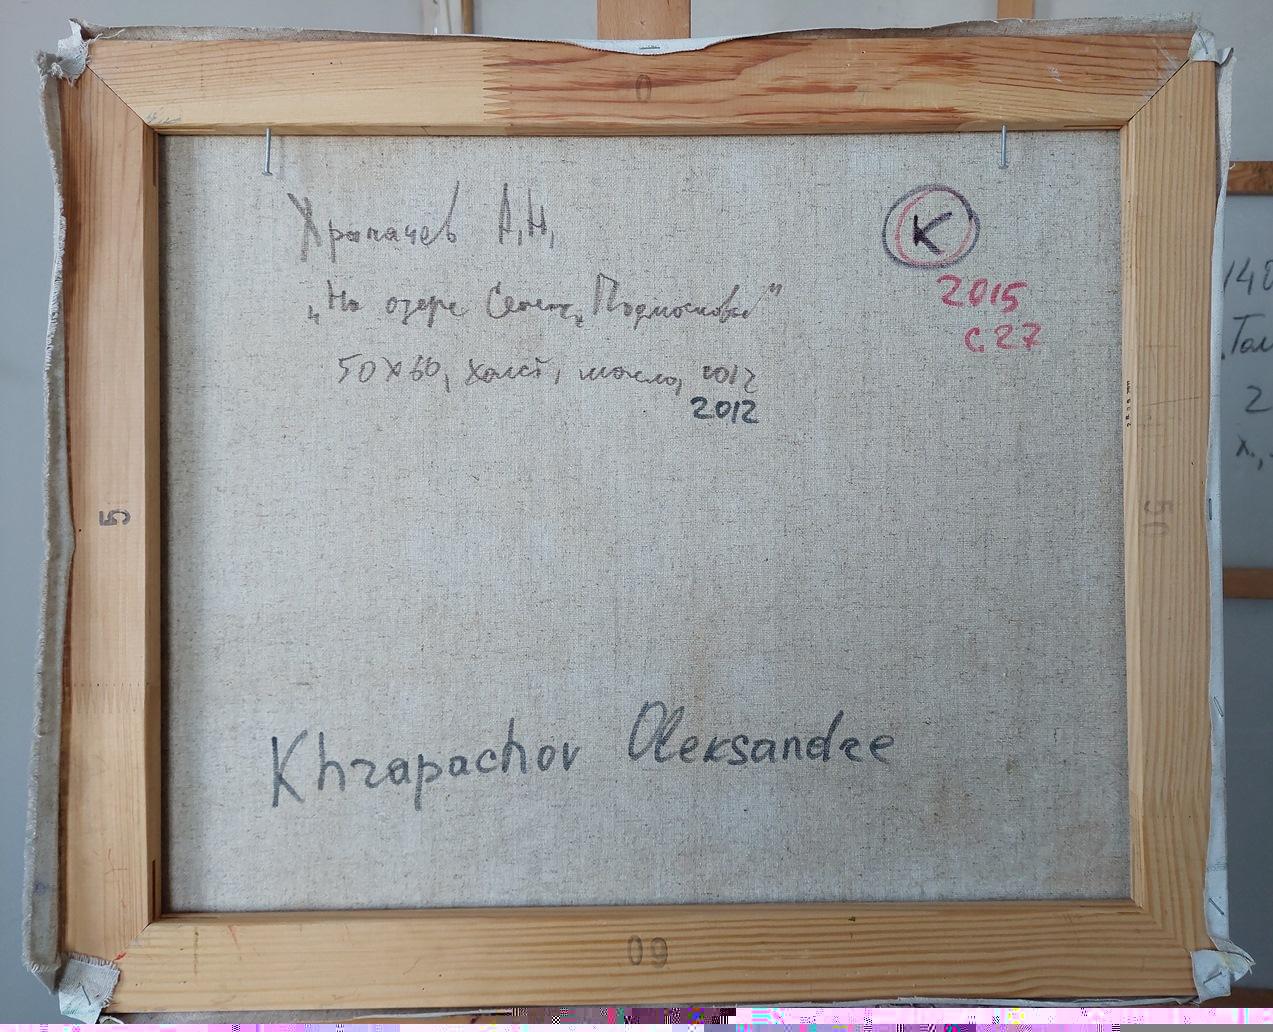 0
Храпачев А.Н.
К
„На озере Сенеж, Подмосковье"
2015
с. 27
50х60, холст, масло, 2012
2012
5
50
Khrapachov Oleksandre
60
148
2
х.,